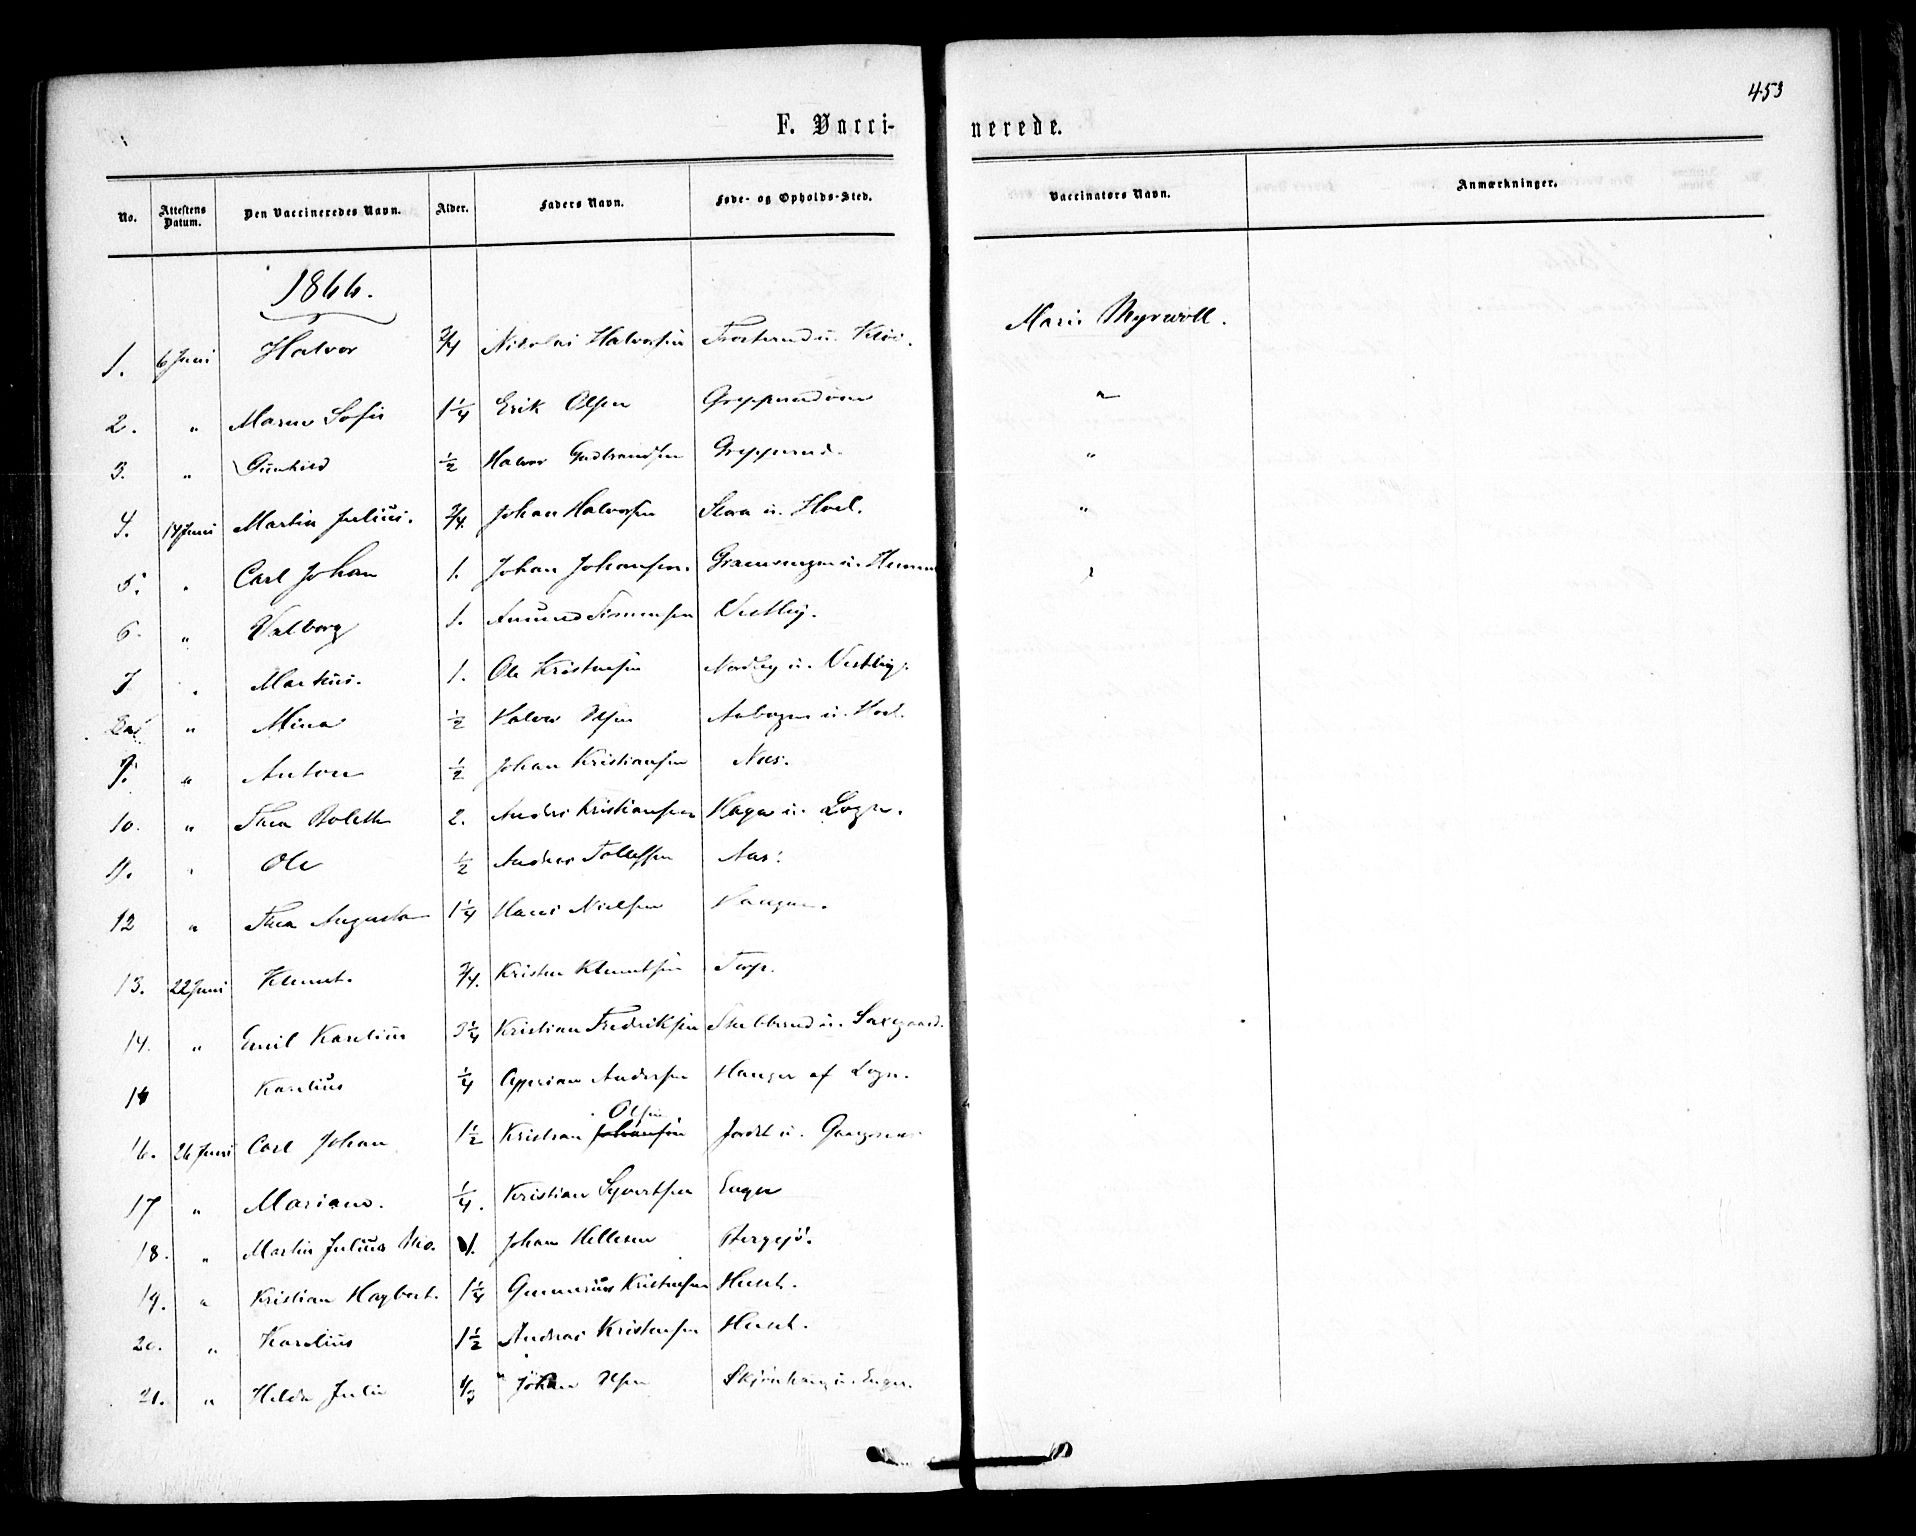 453
F. Vacci- nerede.
No. Attestens Datum. Den Vaccineredes Navn. Alder. Faders Navn. Føde- og Opholds-Sted. Vaccinators Navn. Anmærkninger.
1866.
1. 6 Juni Halvor 3/4 Nikolai Halvorsen u. Marie Myrvold.
2. " Maren Sofie 1 1/4 Erik Olsen "
3. " Gunhild 1/2 Halvor Gudbrandsen Grepperud. "
4. 14 Juni Martin Julius. 3/4. Johan Halvorsen Slora u. Hoel. "
5. " Carl Johan 1. Johan Johansen. u. "
6. " Valborg 1. Amund Simensen Vestby.
7 " Markus. 1. Ole Kristensen Nordby u. Vestby.
" Mina 1/2 Halvor Olsen u. Hoel.
9. " Anton 1/2 Johan Kristiansen Næs.
10. " Thea Bolette 2. Anders Kristiansen Haga u. Logn.
11. " Ole 1/2 Andreas Tollefsen Aas.
12 " Thea Augusta 1 1/4 Hans Nielsen Vangen.
13. 22 Juni Klemet. 3/4. Kristen Klemetsen Torp.
14. " Emil Karelius 3 1/4 Kristian Fredriksen Stubberud u. Saxegaard.
15 Karelius 1/4 Cyprian Andersen Hanger af Logn.
16. 26 Juni Carl Johan 1 1/2 Kristian Johansen Olsen Jordet u.
17 " Mariane. 1/4. Kristian Syvertsen Enger
18. " Martin Julius 1. Johan Hellesen Bergsjø.
19. " Kristian Hagbart. 1 1/4 Gunnerius Kristensen
20. " Karelius 1 1/2 Andreas Kristensen
21. " Hilda Julie 1/3 Johan Olsen u. Enger.